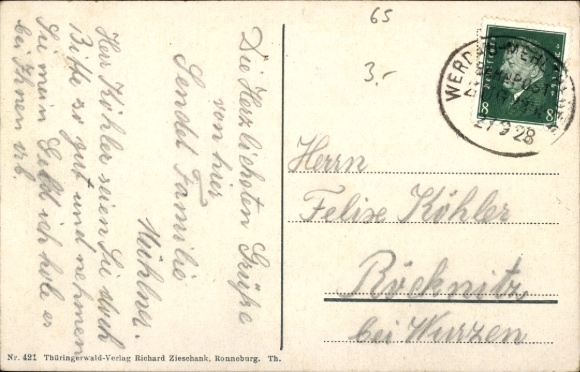 65
3.-
WERDAU-MEH
BAHNPOST
27 9 28
8 8
Die Herzlichsten Grüße
von hier
Sendet Familie
Mühlner.
Herr Köhler seien Sie doch
Bitte so gut und nehmen
Sie mein Geld ich hole es
bei Ihnen ab.
Herrn
Felix Köhler
Röcknitz
bei Wurzen
Nr. 421 Thüringerwald-Verlag Richard Zieschank, Ronneburg. Th.